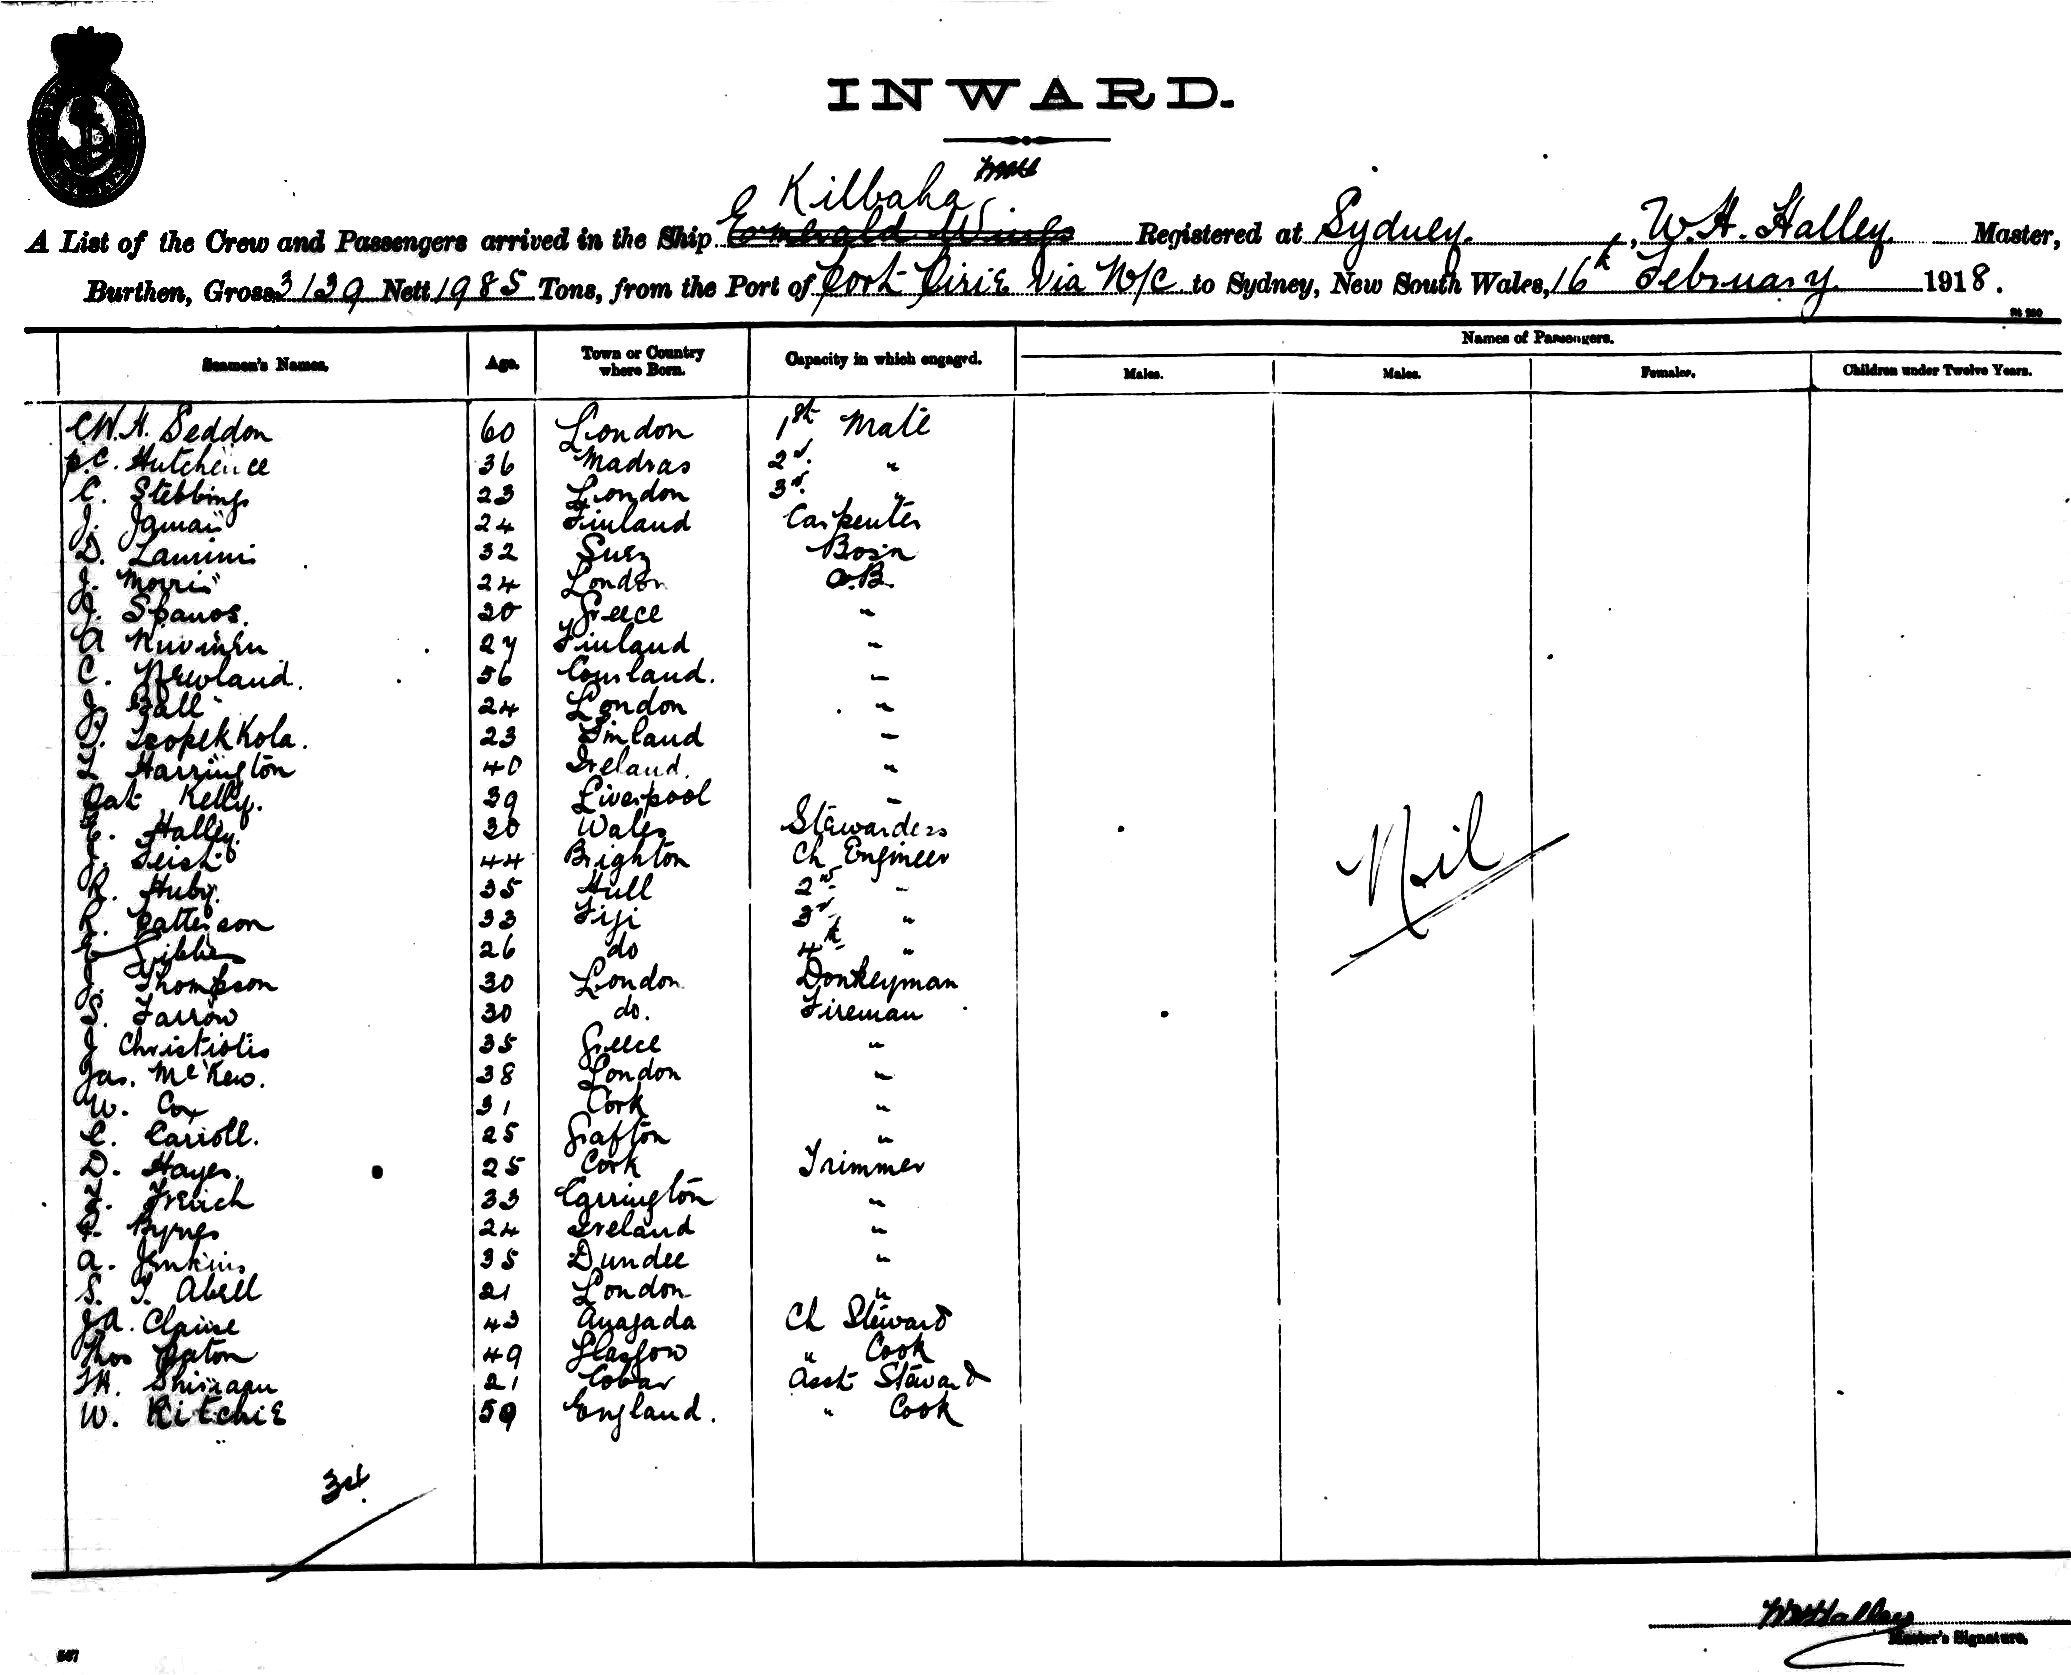 INWARD.
Kilbaha
A List of the Crew and Passengers arrived in the Ship Emerald Wings Registered at Sydney, W. H. Halley Master,
Burthen, Gross 3139 Nett 1985 Tons, from the Port of Port Pirie via N/C to Sydney, New South Wales, 16th February 1918.
Names of Passengers.
Seamen's Names. Age. Town or Country where Born. Capacity in which engaged. Males. Males. Females. Children under Twelve Years.
C.W.H. Seddon 60 London 1st Mate
P.C. Hutchence 36 Madras 2d. "
C. Stebbings 23 London 3d. "
J. 24 Finland Carpenter
D. 32 Suez Bosn
J. Morris 24 London A.B.
J. Spanos. 20 Greece "
A 27 Finland "
C. Newland. 56 Courland. "
J. Ball 24 London "
23 Finland "
Harrington 40 Ireland. "
Pat Kelly. 39 Liverpool "
E. Halley. 30 Wales Stewardess
J. 44 Brighton Ch Engineer
R. Huby. 35 Hull 2nd "
R. Patterson 33 Fiji 3d "
Gibbes 26 do 4th "
J. Thompson 30 London Donkeyman
S. Farrow 30 do. Fireman
J Christiotis 35 Greece "
Jas. McKew. 38 London "
W. Cox 31 Cork "
C. Carroll. 25 Grafton "
D. Hayes. 25 Cork Trimmer
F. French 33 Carrington "
Byrnes 24 Ireland "
A. Jenkins 35 Dundee "
S. T. Abell 21 London "
J.A. 43 Anagada Ch Steward
Thos Paton 49 Glasgow " Cook
21 Cobar Asst Steward
W. Ritchie 59 England. " Cook
Nil
W H Halley
Master's Signature.
567